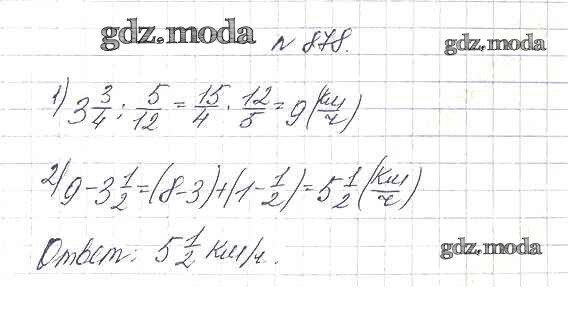 gdz.moda № 878. gdz.moda
1) 3 3/4 : 5/12 = 15/4 · 12/5 = 9 (км/ч)
2) 9 - 3 1/2 = (8 - 3) + (1 - 1/2) = 5 1/2 (км/ч)
Ответ: 5 1/2 км/ч.
gdz.moda